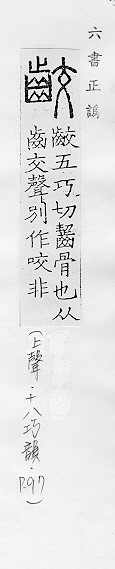 六書正譌
齩
齩五巧切齧骨也从
齒交聲別作咬非
(上聲·十八巧韻·P.97)